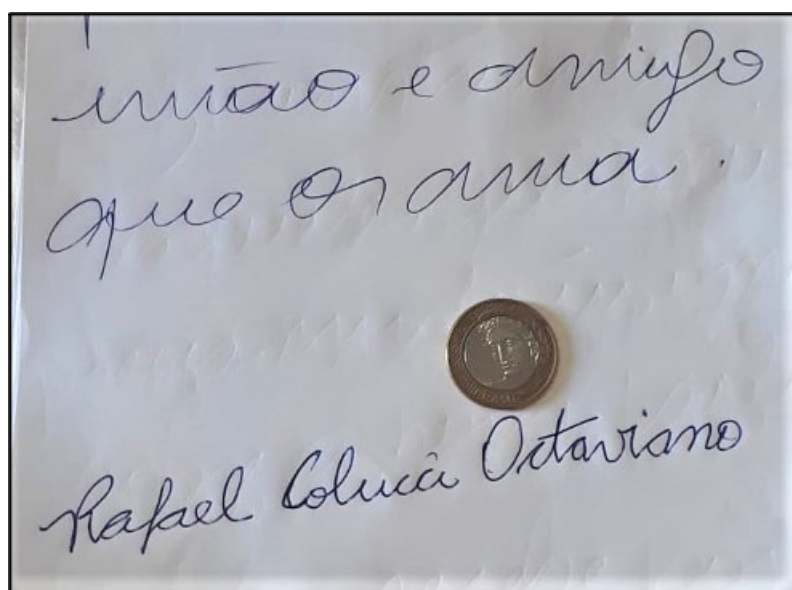 irmão e amigo
que os ama.
Rafael Colucci Octaviano